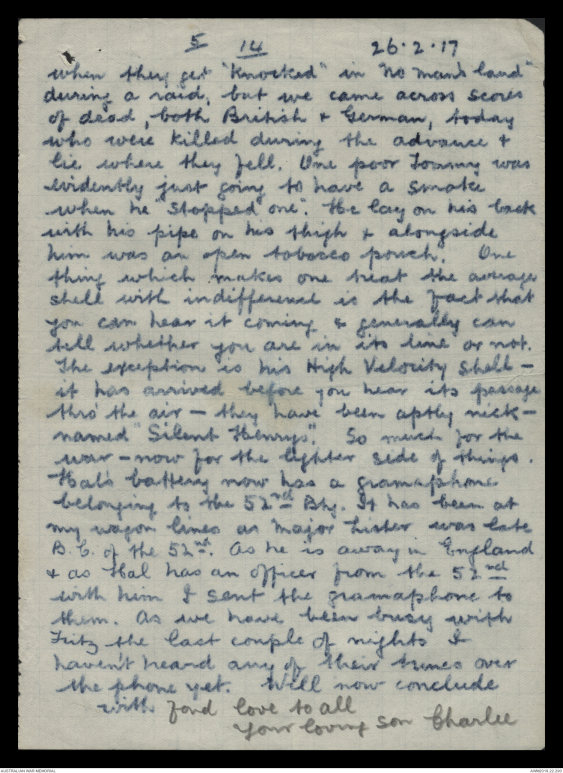 5 14 26.2.17
when they get "knocked" in "no man's land"
during a raid, but we came across scores
of dead, both British & German, today
who were killed during the advance &
lie where they fell. One poor Tommy was
evidently just going to have a smoke
when he "stopped one". He lay on his back
with his pipe on his thigh & alongside
him was an open tobacco pouch. One
thing which makes one treat the average
shell with indifference is the fact that
you can hear it coming & generally can
tell whether you are in its line or not.
The exception is his High Velocity shell -
it has arrived before you hear its passage
thro' the air - they have been aptly nick-
named "Silent Henrys". So much for the
war - now for the lighter side of things.
Hal's battery now has a gramaphone
belonging to the 52nd Bty. It has been at
my wagon lines as Major Lister was late
B.C. of the 52nd. As he is away in England
& as Hal has an officer from the 52nd
with him I sent the gramaphone to
them. As we have been busy with
Fritz the last couple of nights I
haven't heard any of their tunes over
the phone yet. Will now conclude
with fond love to all
Your loving son Charlie
AUSTRALIAN WAR MEMORIAL